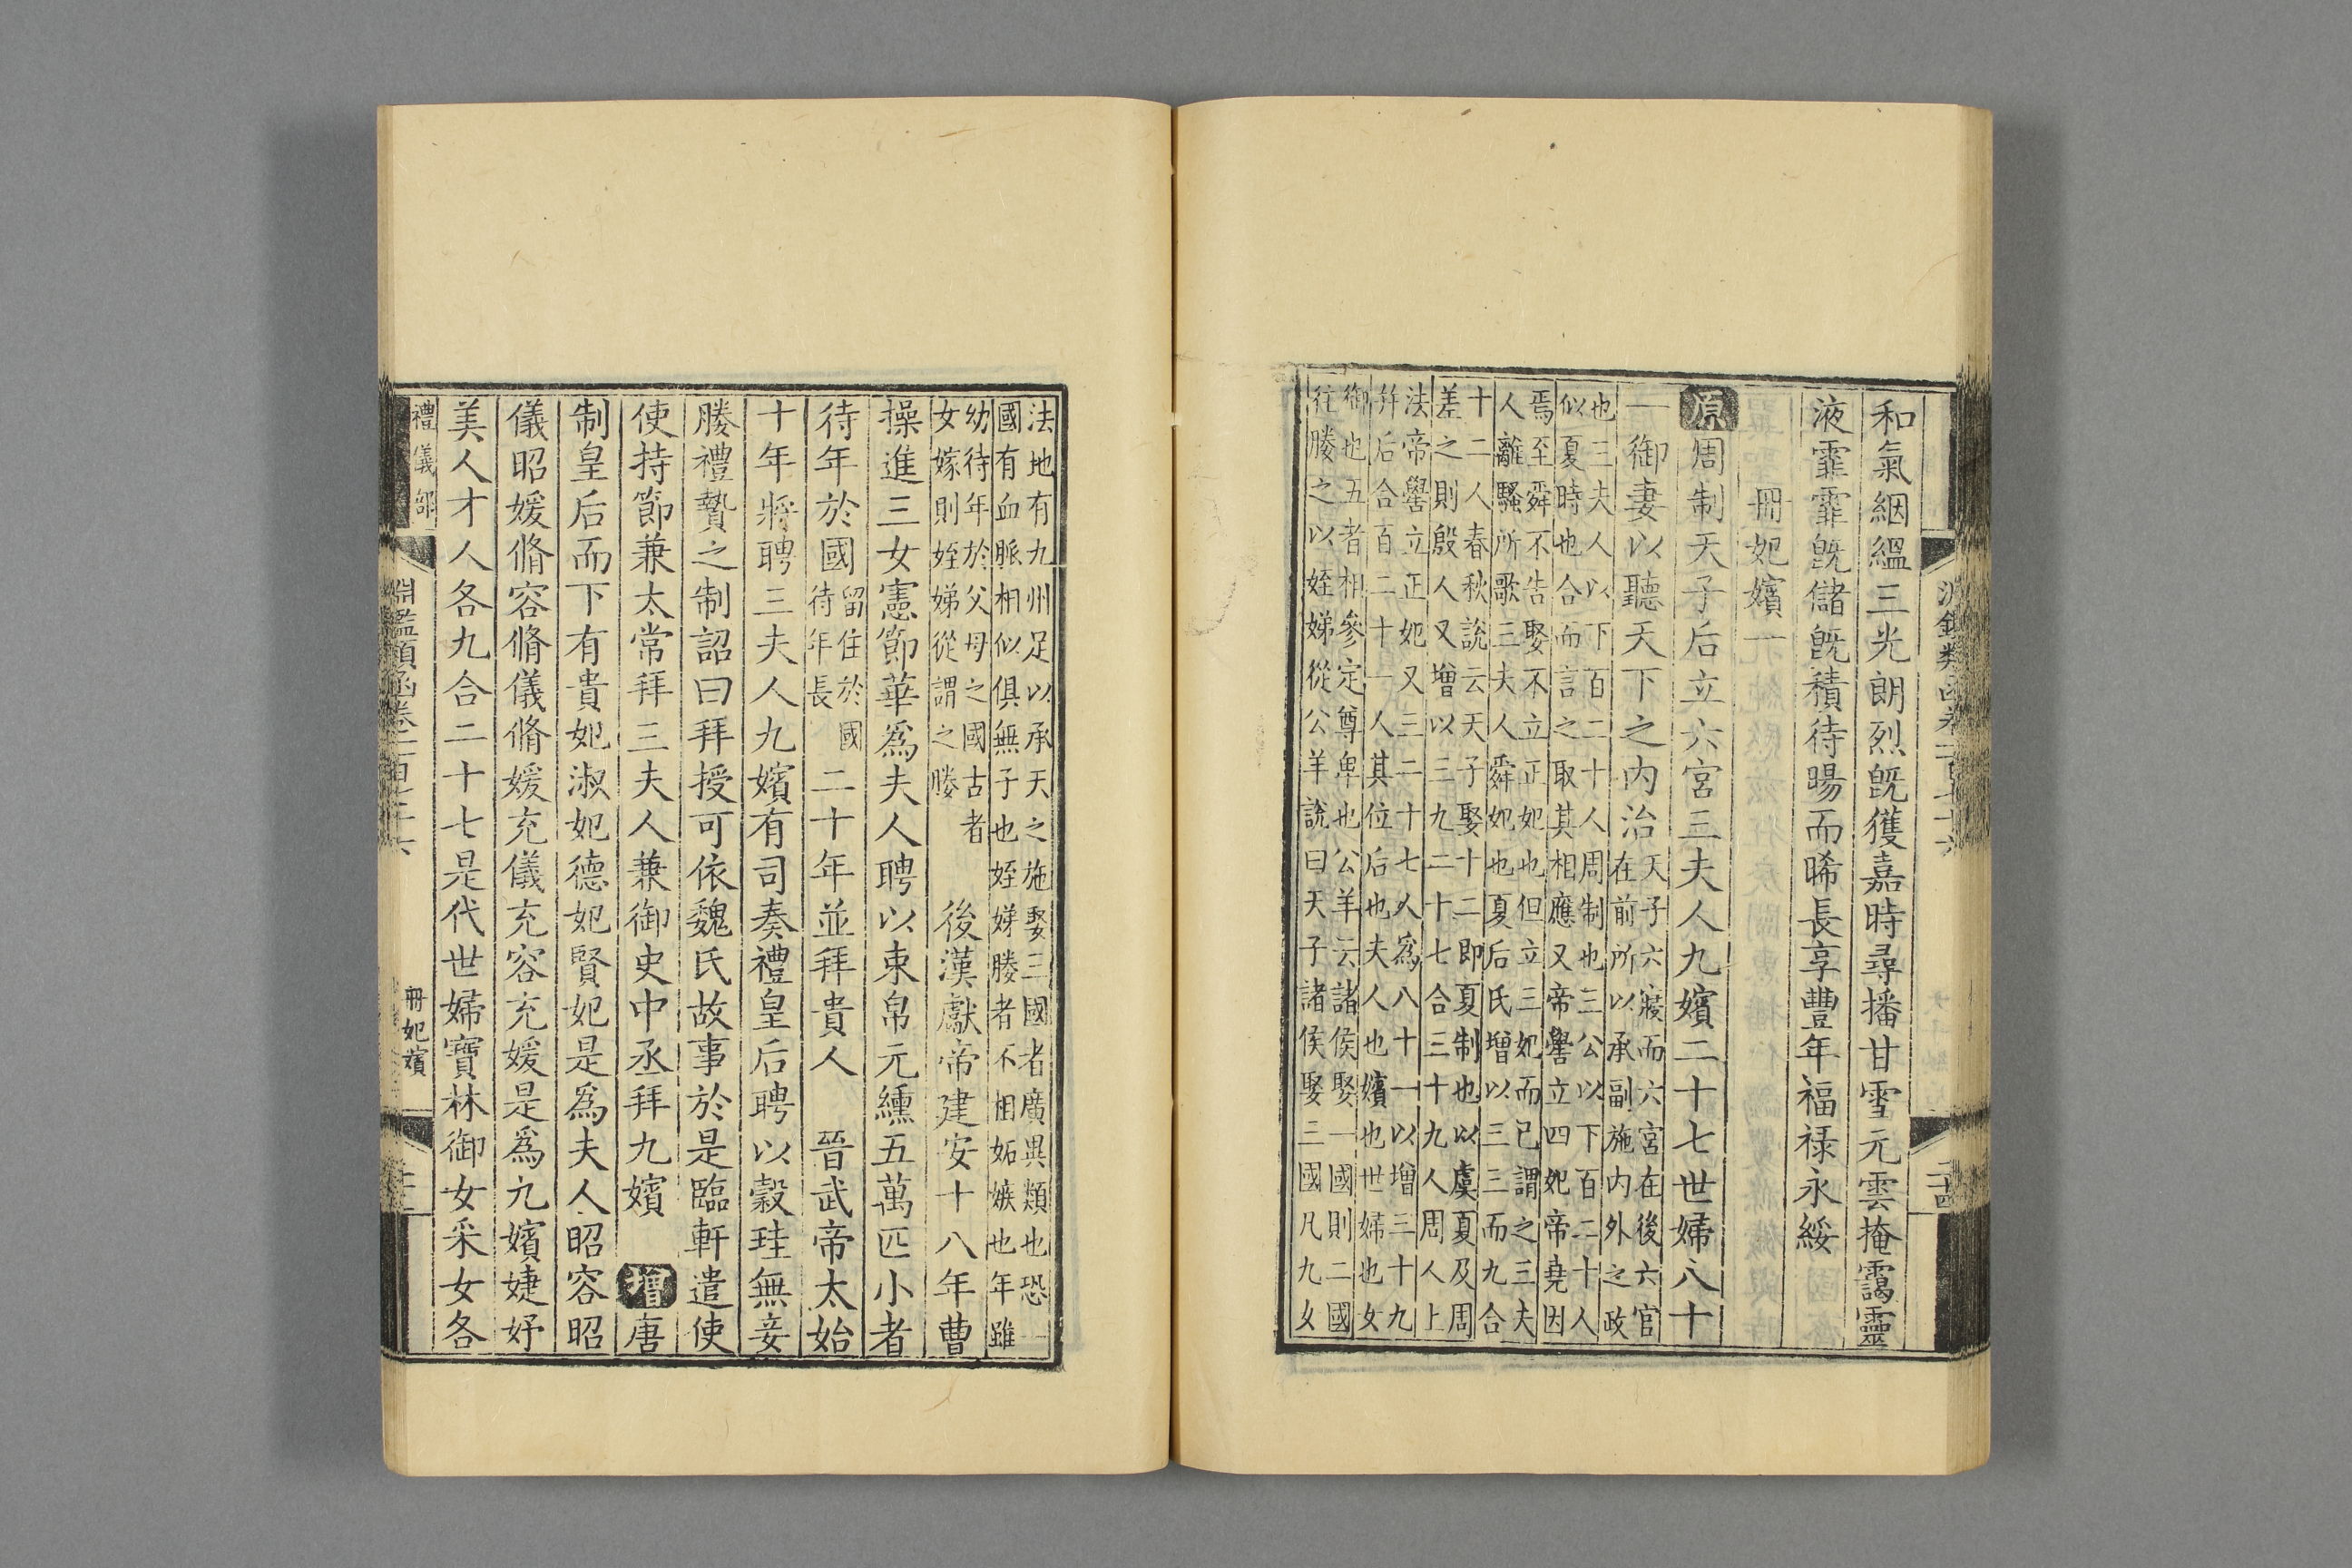 和氣絪縕三光朗烈旣獲嘉時尋播甘雪元雲掩靄靈
液霏霏旣儲旣積待暘而晞長享豐年福禄永綏
冊妃嬪一
原周制天子后立六宮三夫人九嬪二十七世婦八十
一御妻以聽天下之内治
天子六寢而六宮在後六官
在前所以承副施内外之政
也三夫人以下百二十人周制也三公以下百二十人
似夏時也合而言之取其相應又帝嚳立四妃帝堯因
焉至舜不告娶不立正妃也但立三妃而已謂之三夫
人離騷所歌三夫人舜妃也夏后氏增以三三而九合
十二人春秋説云天子娶十二即夏制也以虞夏及周
差之則殷人又增以三九二十七合三十九人周人上
法帝嚳立正妃又三二十七人爲八十一以增三十九
幷后合百二十一人其位后也夫人也嬪也世婦也女
御也五者相參定尊卑也公羊云諸侯娶一國則二國
往媵之以姪娣從公羊説曰天子諸侯娶三國凡九女
二十四
法地有九州足以承天之施娶三國者廣異類也恐一
國有血脈相似俱無子也姪娣媵者不相妬嫉也年雖
幼待年於父母之國古者
女嫁則姪娣從謂之媵
後漢獻帝建安十八年曹
操進三女憲節華爲夫人聘以束帛元纁五萬匹小者
待年於國
留住於國
待年長
二十年並拜貴人 晉武帝太始
十年將聘三夫人九嬪有司奏禮皇后聘以穀珪無妾
媵禮贄之制詔曰拜授可依魏氏故事於是臨軒遣使
使持節兼太常拜三夫人兼御史中丞拜九嬪 增唐
制皇后而下有貴妃淑妃德妃賢妃是爲夫人昭容昭
儀昭媛脩容脩儀脩媛充儀充容充媛是爲九嬪婕妤
美人才人各九合二十七是代世婦寶林御女采女各
禮儀部
淵鑑類函卷二百七十六
冊妃嬪